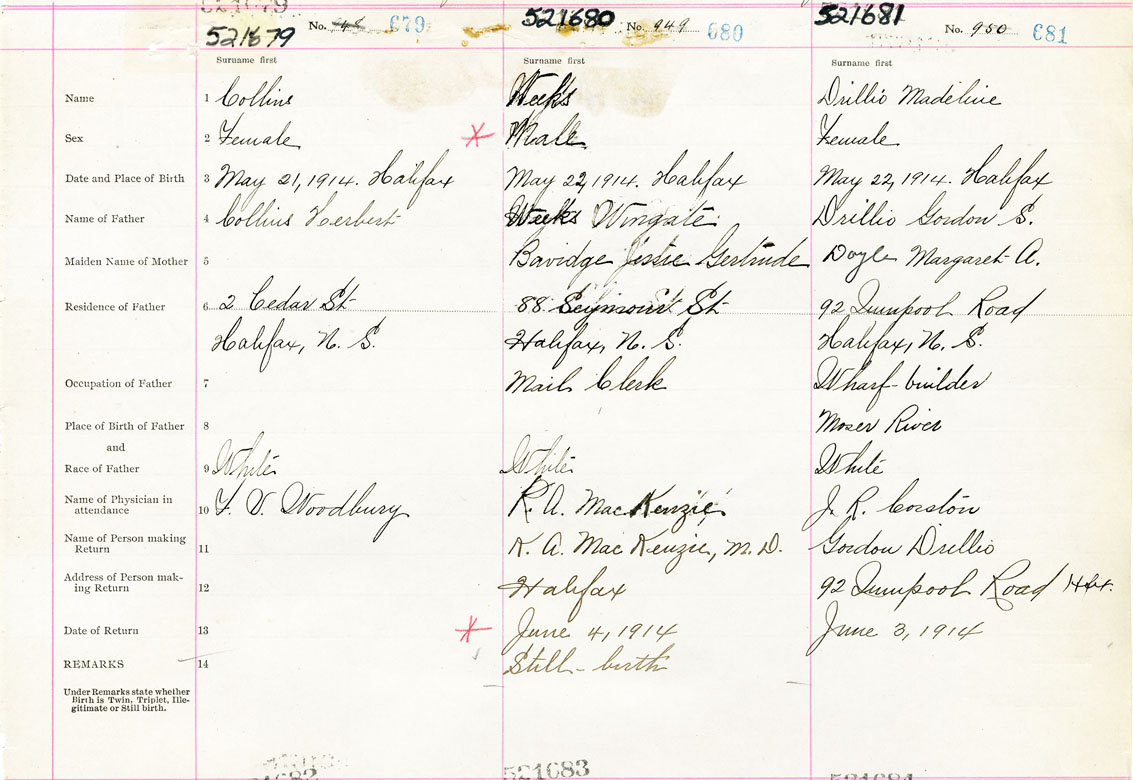 521679 521680 521681
521679 No. 948 679 No. 949 680 No. 950 681
Surname first Surname first Surname first
Name 1 Collins Weeks Drillio Madeline
Sex 2 Female * Male Female
Date and Place of Birth 3 May 21, 1914. Halifax May 22, 1914. Halifax May 22, 1914. Halifax
Name of Father 4 Collins Herbert Weeks Wingate Drillio Gordon S.
Maiden Name of Mother 5 Bavidge Jessie Gertrude Doyle Margaret A.
Residence of Father 6 2 Cedar St 88 Seymour St 92 Quinpool Road
Halifax, N. S. Halifax, N. S. Halifax, N. S.
Occupation of Father 7 Mail Clerk Wharf-builder
Place of Birth of Father 8 Moser River
and
Race of Father 9 White White White
Name of Physician in
attendance 10 F. V. Woodbury K. A. MacKenzie J. R. Corston
Name of Person making
Return 11 K. A. MacKenzie, M.D. Gordon Drillio
Address of Person mak-
ing Return 12 Halifax 92 Quinpool Road Hfx.
Date of Return 13 * June 4, 1914 June 3, 1914
REMARKS 14 Still-birth
Under Remarks state whether
Birth is Twin, Triplet, Ille-
gitimate or Still birth.
521683